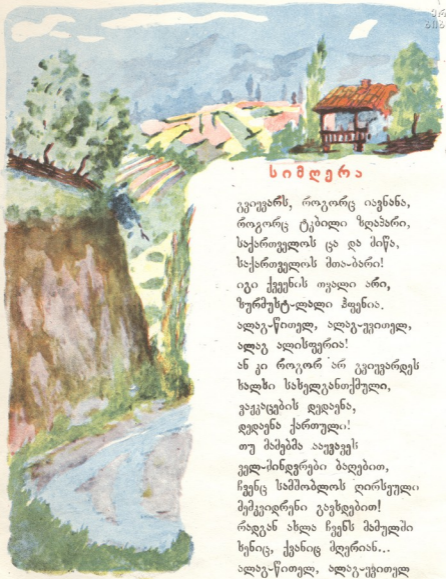 სიმღერა
გვიყვარს, როგორც იავნანა,
როგორც ტკბილი ზღაპარი,
საქართველოს ცა და მიწა,
საქართველოს მთა-ბარი!
იგი ქვეყნის თვალი არი,
ზურმუხტ-ლალი ჰფენია.
ალაგ-წითელ, ალაგ-ყვითელ,
ალაგ ალისფერია!
ან კი როგორ არ გვიყვარდეს
ხალხი სახელგანთქმული,
ვაჟკაცების დედაენა,
დედაენა ქართული!
თუ მამებმა ააყვავეს
ველ-მინდვრები ბაღებით,
ჩვენც სამშობლოს ღირსეული
მემკვიდრენი გავხდებით!
რადგან ახლა ჩვენს მამულში
ხენიც, ქვანიც მღერიან...
ალაგ-წითელ, ალაგ-ყვითელ